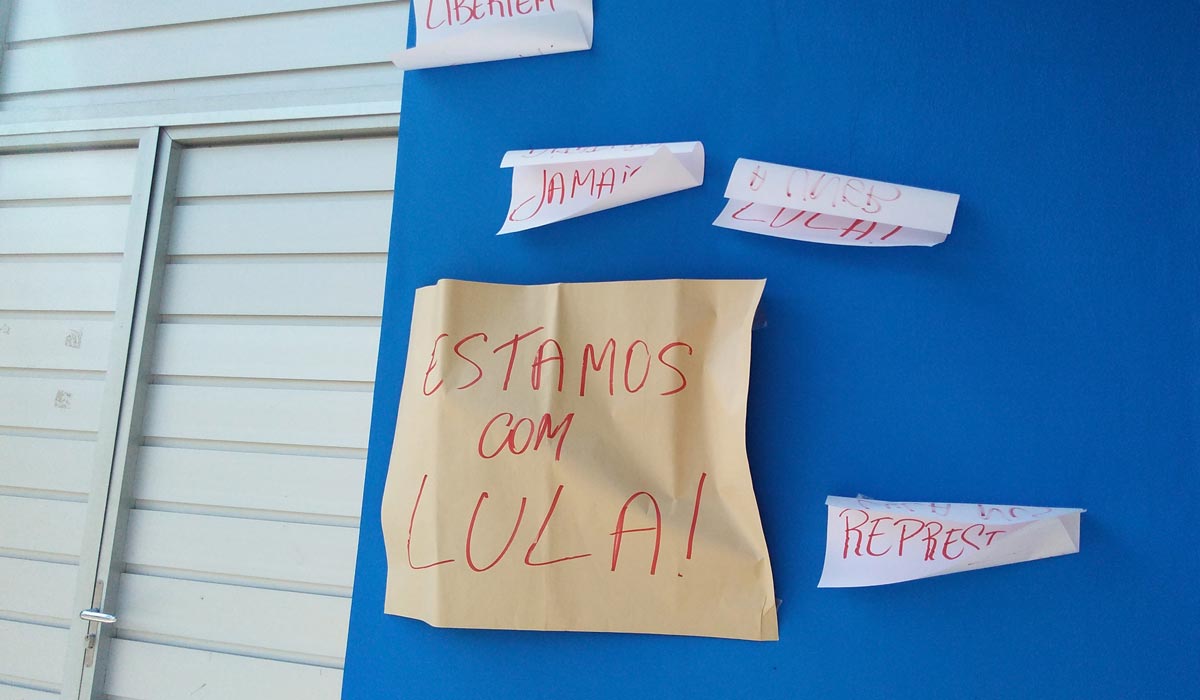 LIBERTEM
JAMAI
LULA!
ESTAMOS
COM
LULA!
REPRES